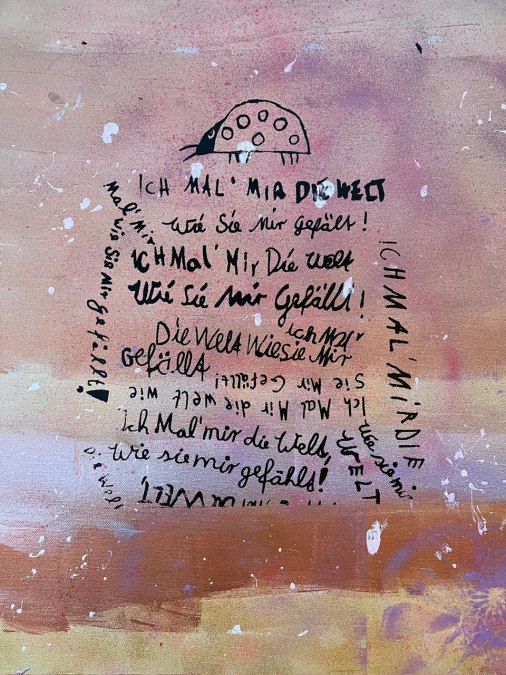 ICH MAL' MIR DIE WELT
Wie Sie Mir gefällt!
ICH Mal' Mir Die Welt
Wie Sie Mir Gefällt!
ich Mal'
Die Welt Wie Sie Mir
Gefällt
Ich Mal Mir die welt wie
Sie Mir Gefällt!
Ich Mal' mir die Welt,
wie sie mir gefählt!
WELT
Mal' Mir
Wie Sie Mir gefällt!
die Welt
ICH MAL' MIR DIE
WELT
wie sie mir